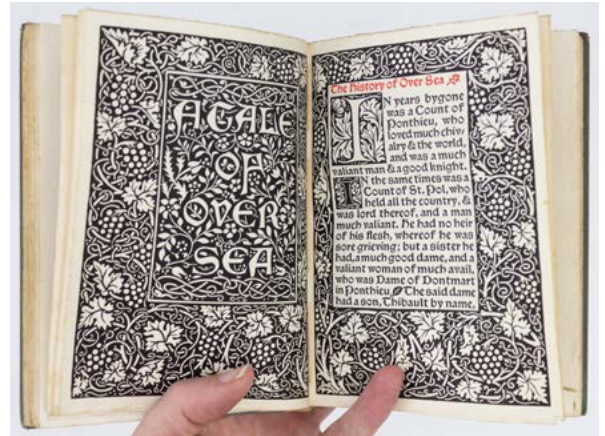 A TALE
OF
OVER
SEA
The History of Over Sea
IN years bygone
was a Count of
Ponthieu, who
loved much chiv-
alry & the world,
and was a much
valiant man & a good knight.
IN the same times was a
Count of St. Pol, who
held all the country, &
was lord thereof, and a man
much valiant. He had no heir
of his flesh, whereof he was
sore grieving; but a sister he
had, a much good dame, and a
valiant woman of much avail,
who was Dame of Dontmart
in Ponthieu. The said dame
had a son, Thibault by name,